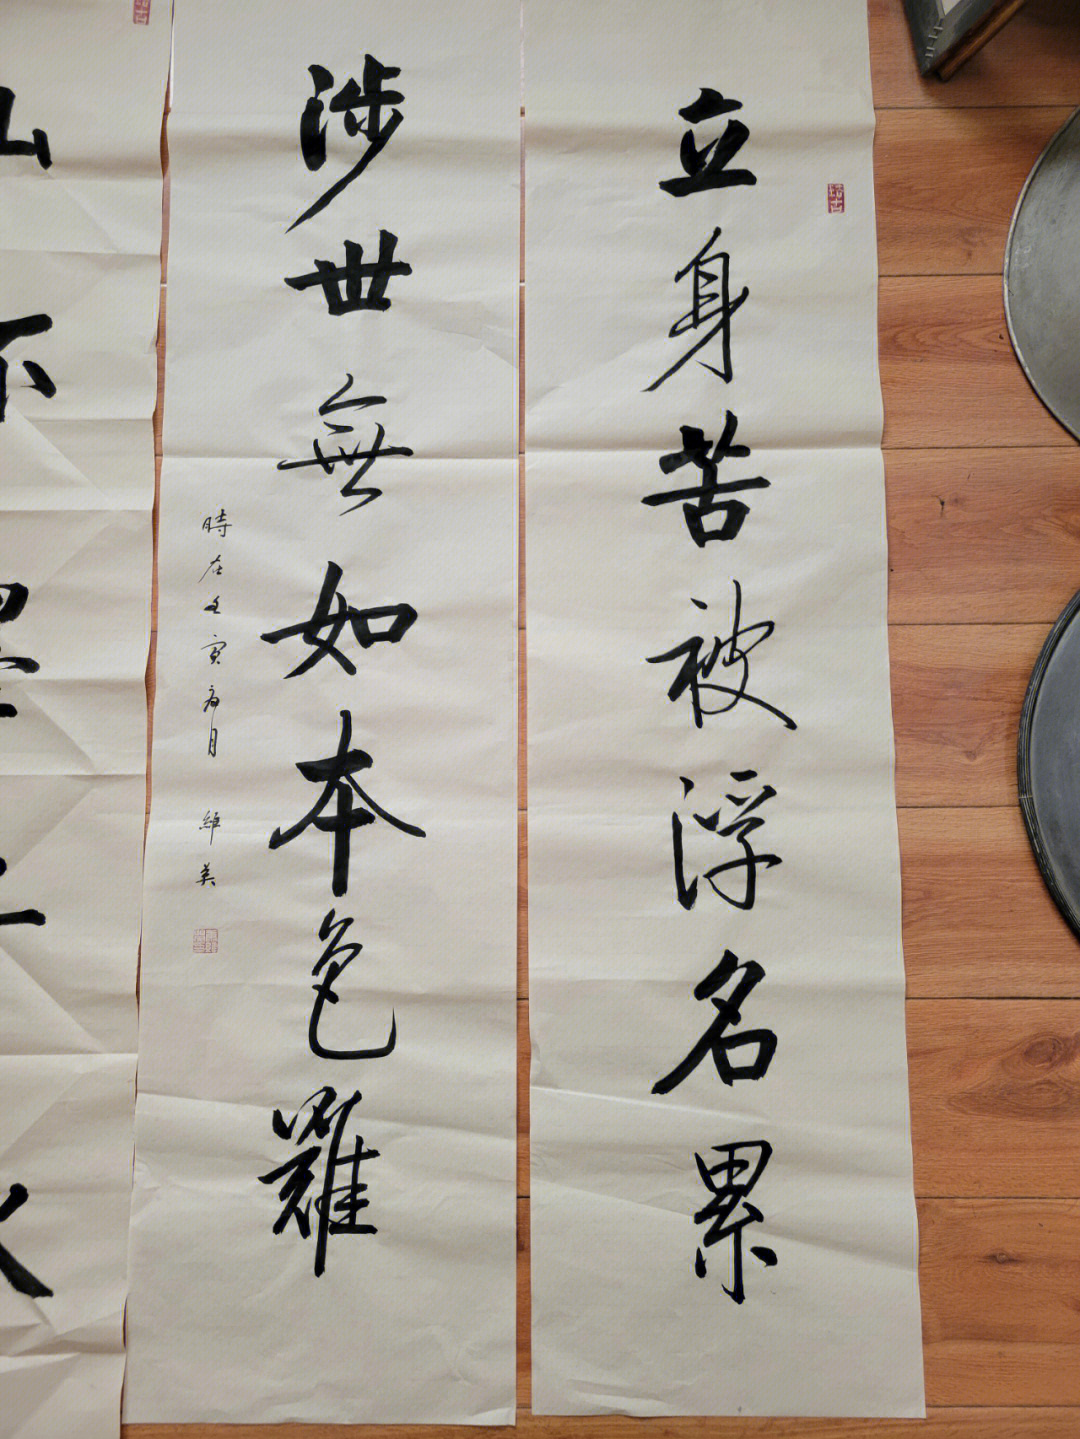 立身苦被浮名累
涉世無如本色難
時在壬寅
月
維英